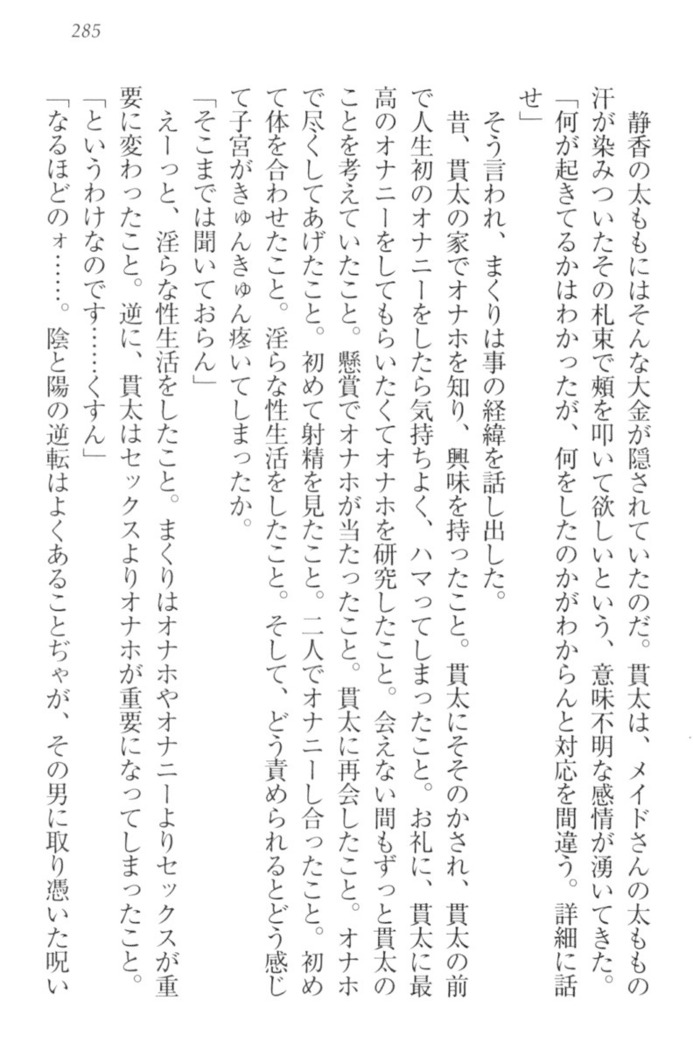 285
静香の太ももにはそんな大金が隠されていたのだ。貫太は、メイドさんの太ももの
汗が染みついたその札束で頬を叩いて欲しいという、意味不明な感情が湧いてきた。
「何が起きてるかはわかったが、何をしたのかがわからんと対応を間違う。詳細に話
せ」
そう言われ、まくりは事の経緯を話し出した。
昔、貫太の家でオナホを知り、興味を持ったこと。貫太にそそのかされ、貫太の前
で人生初のオナニーをしたら気持ちよく、ハマってしまったこと。お礼に、貫太に最
高のオナニーをしてもらいたくてオナホを研究したこと。会えない間もずっと貫太の
ことを考えていたこと。懸賞でオナホが当たったこと。貫太に再会したこと。オナホ
で尽くしてあげたこと。初めて射精を見たこと。二人でオナニーし合ったこと。初め
て体を合わせたこと。淫らな性生活をしたこと。そして、どう責められるとどう感じ
て子宮がきゅんきゅん疼いてしまったか。
「そこまでは聞いておらん」
えーっと、淫らな性生活をしたこと。まくりはオナホやオナニーよりセックスが重
要に変わったこと。逆に、貫太はセックスよりオナホが重要になってしまったこと。
「というわけなのです……くすん」
「なるほどのォ……。陰と陽の逆転はよくあることぢゃが、その男に取り憑いた呪い